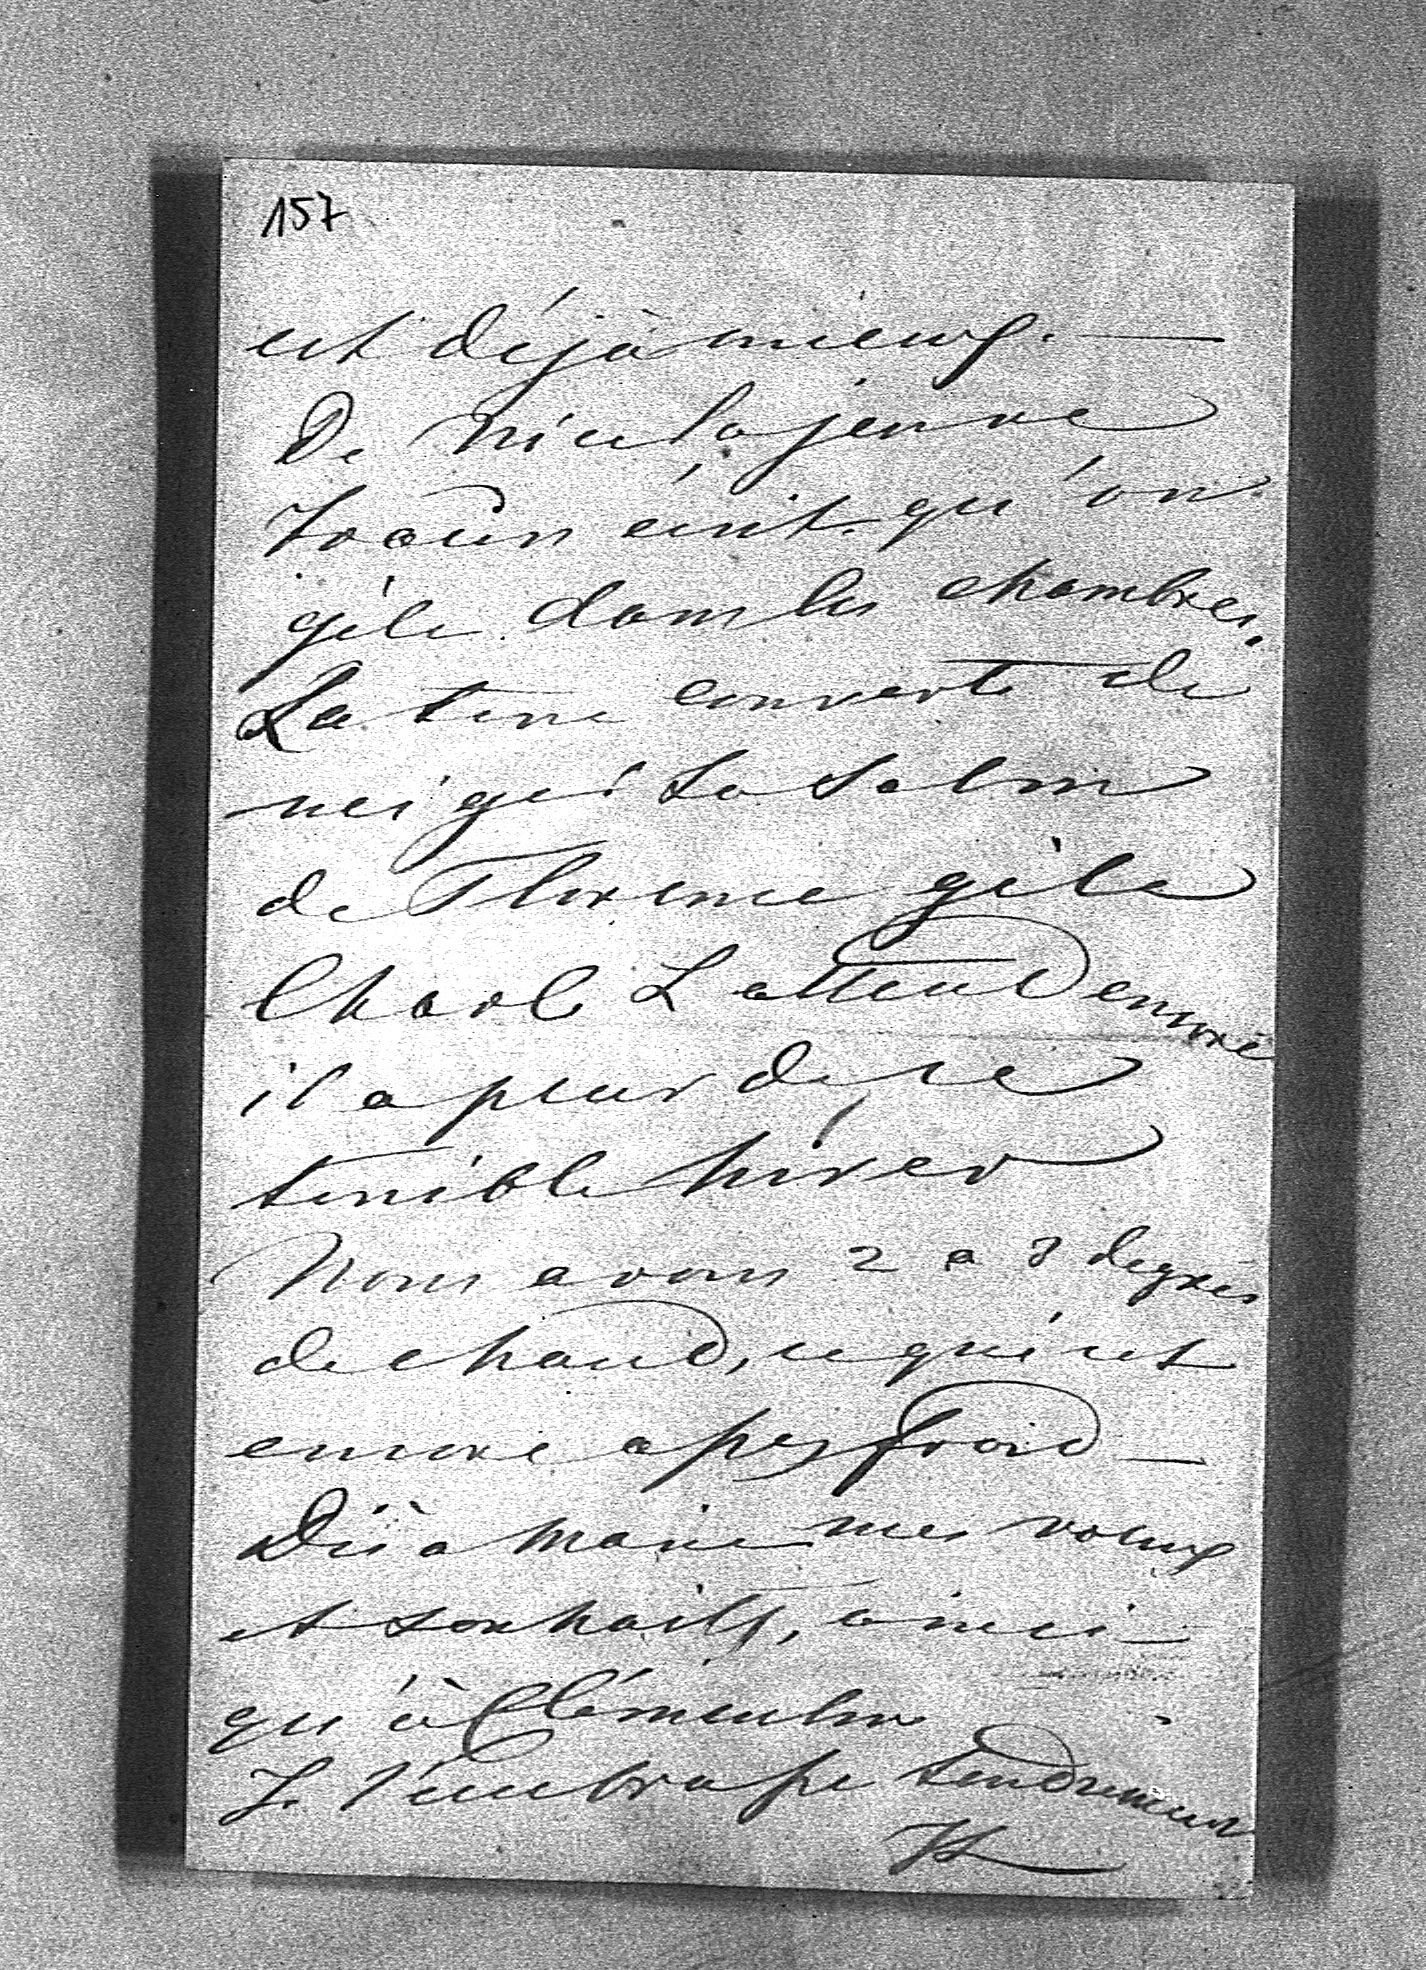 157
est déjà mieux. —
De Nice la jeune
Traun écrit qu'on
gèle dans les chambres.
La terre couverte de
neige! La Salm
de Florence gèle
Charl L attend encore
il a peur de ce
terrible hiver
Nous avons 2 a 3 degrés
de chaud, ce qui est
encore assez froid —
Dis à Marie mes voeux
et souhaits, ainsi
qu'à Clémentine
Je t'embrasse tendrement